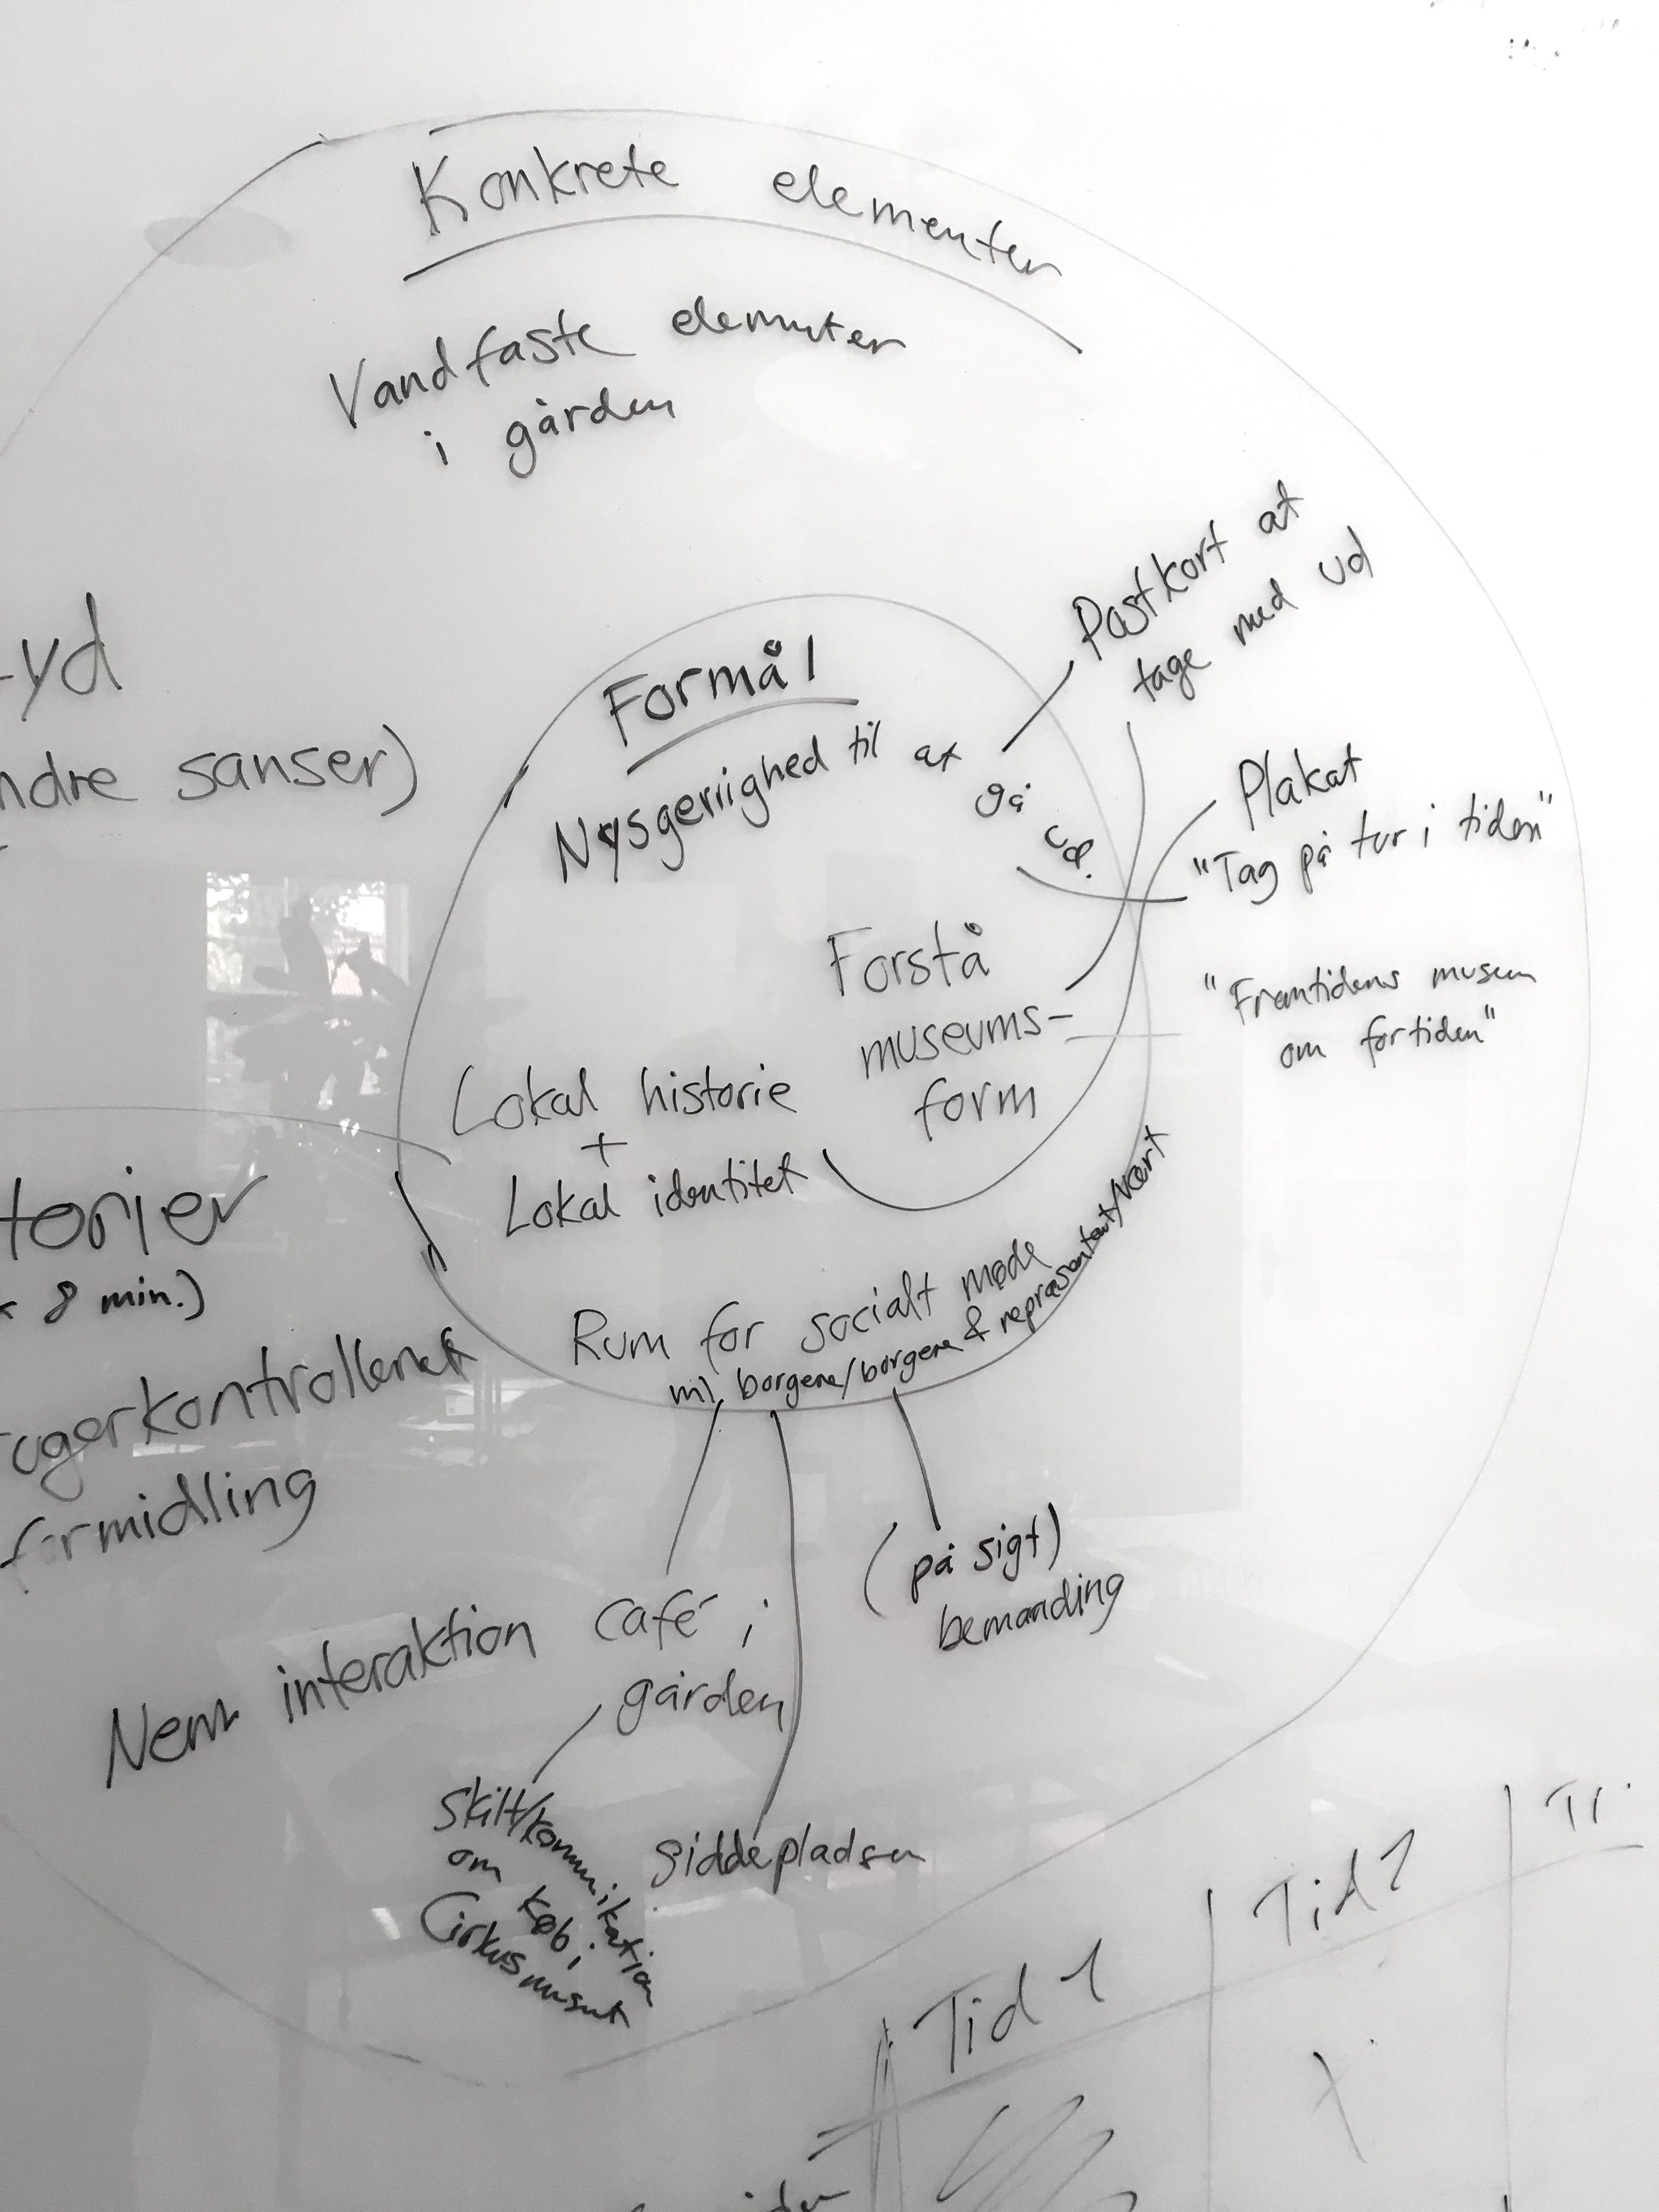 Konkrete elementer
Vandfaste elementer
i gården
Postkort at
tage med ud
Formål
Nysgerrighed til at gå op.
Plakat
"Tag på tur i tiden"
Forstå
museums-
form
"Fremtidens museum
om fortiden"
Lokal historie
+
Lokal identitet
Rum for socialt møde
ml. borgere/borgere & repræsentant/vært
(på sigt)
bemanding
Nem interaktion café i
gården
Skilt/kommunikation
om køb i
Cirkusmuseet
siddepladser
yd
ndre sanser)
torier
8 min.)
ugerkontrolleret
formidling
Tid 1
Tid 2
Ti